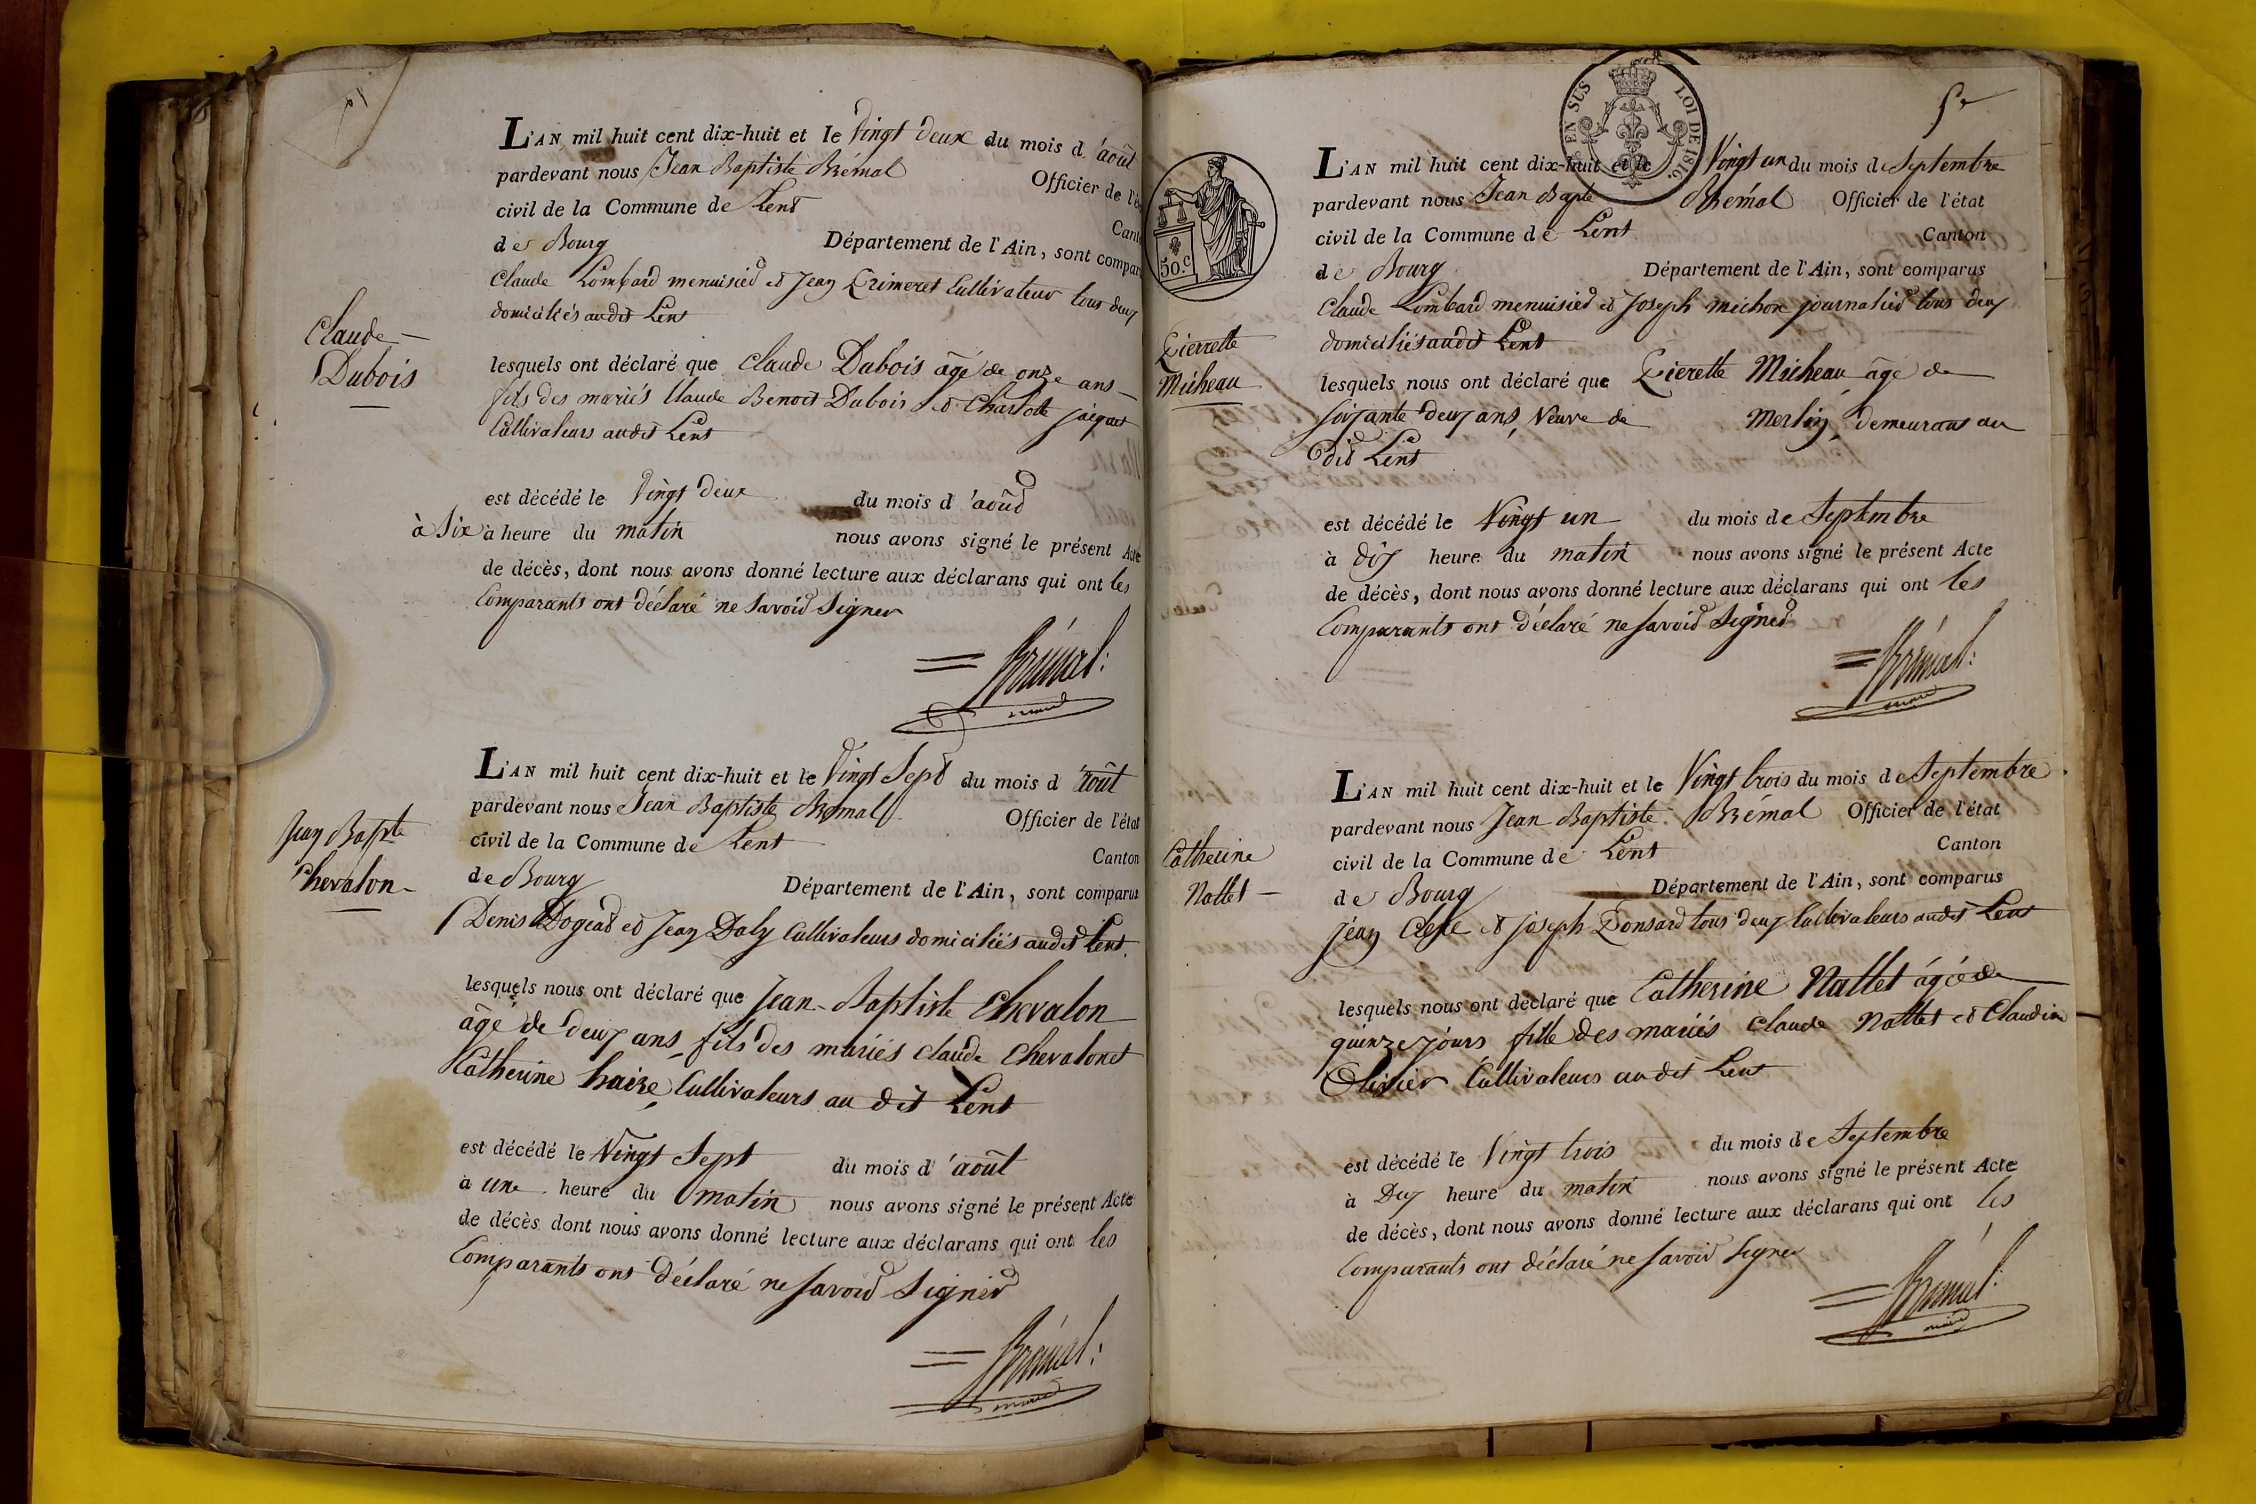 L'AN mil huit cent dix-huit et le Vingt deux du mois d'août
pardevant nous Jean Baptiste Brémal Officier de l'é
civil de la Commune de Lent Cant
de Bourg Département de l'Ain, sont compar
Claude Lombard menuisier et Jean Primeret Cultivateur tous deux
domiciliés audit Lent
Claude
Dubois
lesquels ont déclaré que Claude Dubois âgé de onze ans
fils des mariés Claude Benoit Dubois et Charlotte jaiquet
Cultivateurs audit Lent
est décédé le Vingt deux du mois d'août
à Six à heure du matin nous avons signé le présent Acte
de décès, dont nous avons donné lecture aux déclarans qui ont les
Comparants ont déclaré ne savoir signer
Brémal:
maire
L'AN mil huit cent dix-huit et le Vingt Sept du mois d'août
pardevant nous Jean Baptiste Brémal Officier de l'état
civil de la Commune de Lent Canton
de Bourg Département de l'Ain, sont comparus
Jean Bapte
Chevalon
Denis et Jean Daly Cultivateurs domiciliés audit Lent.
lesquels nous ont déclaré que Jean-Baptiste Chevalon
âgé de deux ans, fils des mariés Claude Chevalon et
Catherine haire, Cultivateurs au dit Lent
est décédé le Vingt Sept du mois d'août
à une heure du matin nous avons signé le présent Acte
de décès dont nous avons donné lecture aux déclarans qui ont les
Comparants ont déclaré ne savoir signer
Brémal:
maire
5e
EN SUS LOI DE 1816.
50.c
L'AN mil huit cent dix-huit et le Vingt un du mois de Septembre
pardevant nous Jean Bapte Brémal Officier de l'état
civil de la Commune de Lent Canton
de Bourg Département de l'Ain, sont comparus
Claude Lombard menuisier et Joseph michon journalier tous deux
domiciliés audit Lent
Pierrette
Micheau
lesquels nous ont déclaré que Pierette Micheau âgé de
soixante deux ans, Veuve de Merlin, demeurant au
dit Lent
est décédé le Vingt un du mois de Septembre
à dix heure du matin nous avons signé le présent Acte
de décès, dont nous avons donné lecture aux déclarans qui ont les
Comparants ont déclaré ne savoir signer
Brémal:
maire
L'AN mil huit cent dix-huit et le Vingt trois du mois de Septembre
pardevant nous Jean Baptiste Brémal Officier de l'état
civil de la Commune de Lent Canton
de Bourg Département de l'Ain, sont comparus
Catherine
Nallet
jean et joseph Ponsard tous deux Cultivateurs audit Lent
lesquels nous ont déclaré que Catherine Nallet âgée de
quinze jours fille des mariés Claude Nallet et Claudine
Olivier Cultivateurs au dit Lent
est décédé le Vingt trois du mois de Septembre
à Deux heure du matin nous avons signé le présent Acte
de décès, dont nous avons donné lecture aux déclarans qui ont les
Comparants ont déclaré ne savoir signer
Brémal:
maire